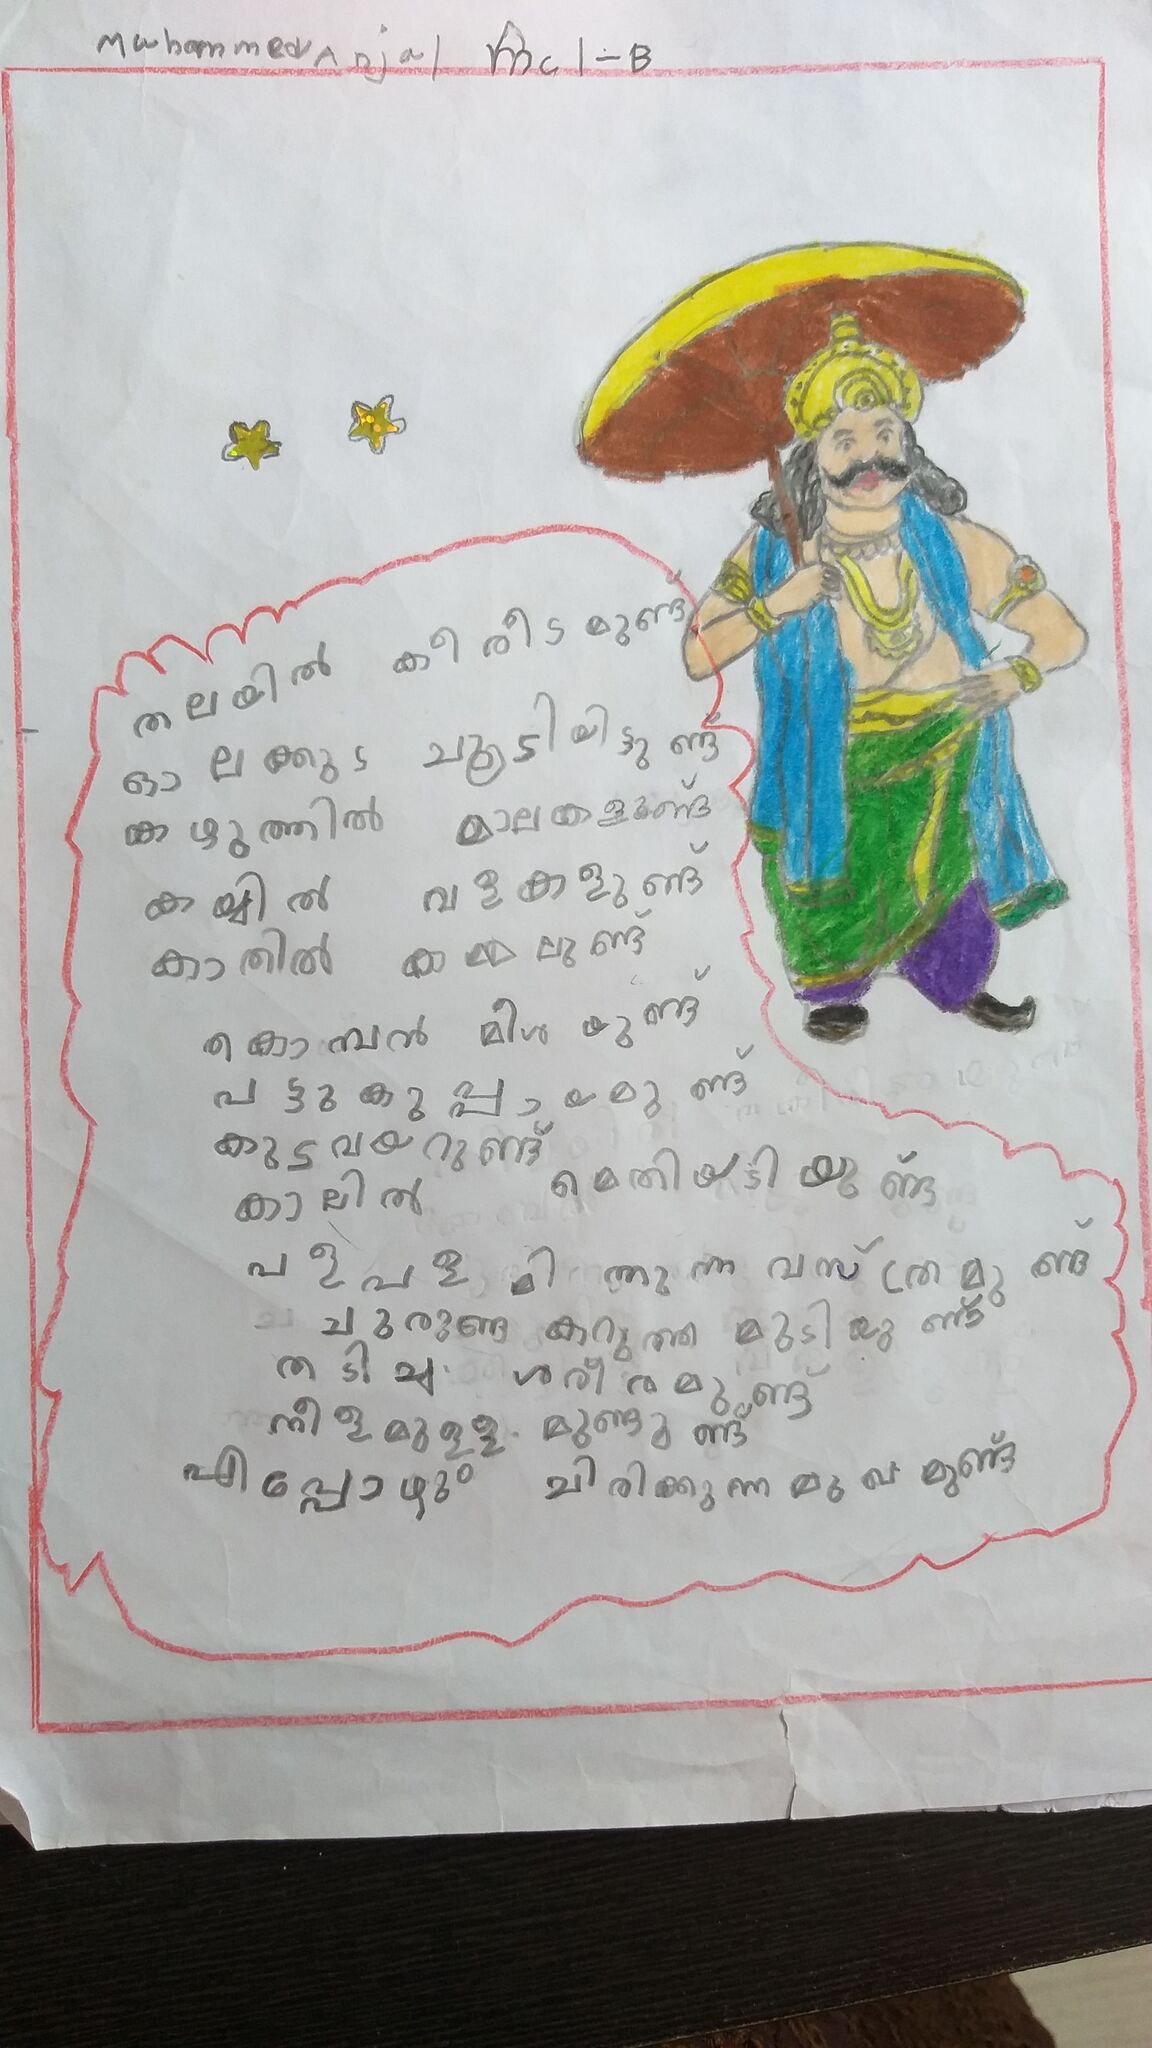 Muhammed Anjal 1-B
തലയിൽ കീരീടമുണ്ട
ഓലക്കുട ചൂടിയിട്ടുണ്ട്
കഴുത്തിൽ മാലകളുണ്ട്
കയ്യിൽ വളകളുണ്ട്
കാതിൽ കമ്മലുണ്ട്
കൊമ്പൻ മീശയുണ്ട്
പട്ടുകുപ്പായമുണ്ട്
കുടവയറുണ്ട്
കാലിൽ മെതിയടിയുണ്ട്
പളപളമിന്നുന്ന വസ്ത്രമുണ്ട്
ചുരുണ്ട കറുത്ത മുടിയുണ്ട്
തടിച്ച ശരീരമുണ്ട്
നീളമുള്ള മുണ്ടുണ്ട്
എപ്പോഴും ചിരിക്കുന്ന മുഖമുണ്ട്